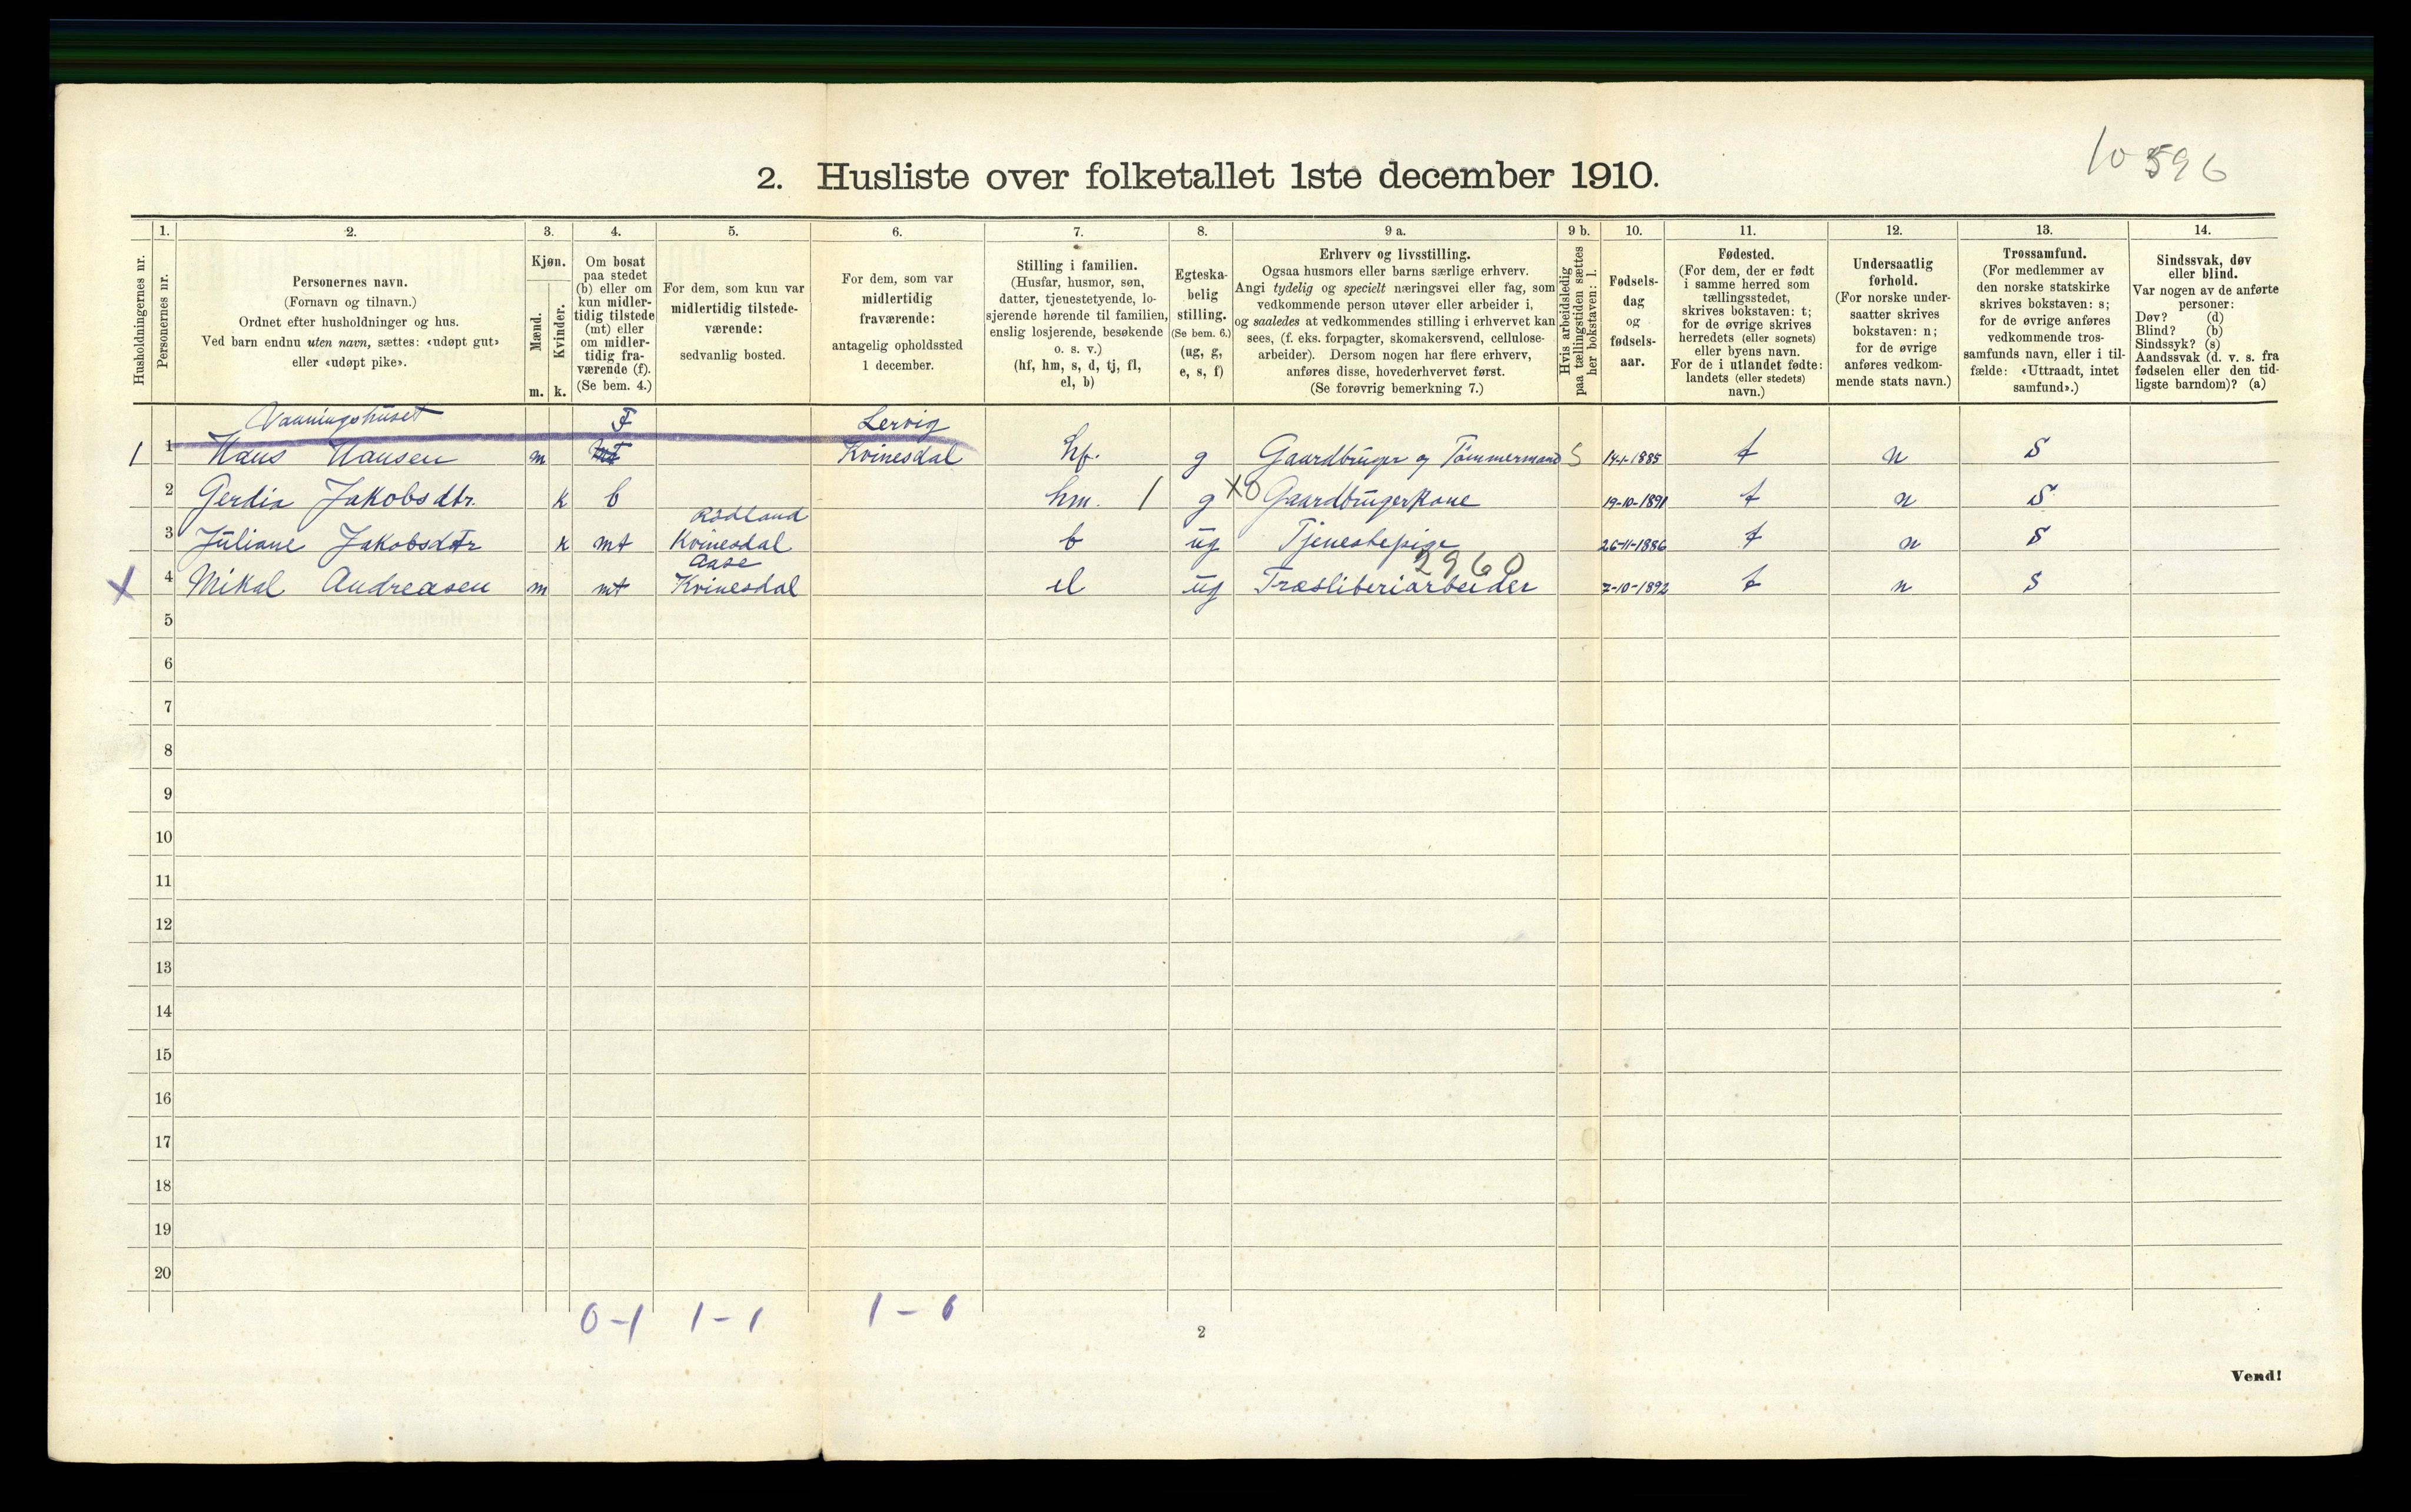 10 596
2. Husliste over folketallet 1ste december 1910.
Husholdningernes nr.
1.
Personernes nr.
2.
Personernes navn.
(Fornavn og tilnavn.)
Ordnet efter husholdninger og hus.
Ved barn endnu uten navn, sættes: «udøpt gut»
eller «udøpt pike».
3.
Kjøn.
Mænd.
Kvinder.
m. k.
4.
Om bosat
paa stedet
(b) eller om
kun midler-
tidig tilstede
(mt) eller
om midler-
tidig fra-
værende (f).
(Se bem. 4.)
5.
For dem, som kun var
midlertidig tilstede-
værende:
sedvanlig bosted.
6.
For dem, som var
midlertidig
fraværende:
antagelig opholdssted
1 december.
7.
Stilling i familien.
(Husfar, husmor, søn,
datter, tjenestetyende, lo-
sjerende hørende til familien,
enslig losjerende, besøkende
o. s. v.)
(hf, hm, s, d, tj, fl,
el, b)
8.
Egteska-
belig
stilling.
(Se bem. 6.)
(ug, g,
e, s, f)
9 a.
Erhverv og livsstilling.
Ogsaa husmors eller barns særlige erhverv.
Angi tydelig og specielt næringsvei eller fag, som
vedkommende person utøver eller arbeider i,
og saaledes at vedkommendes stilling i erhvervet kan
sees, (f. eks. forpagter, skomakersvend, cellulose-
arbeider). Dersom nogen har flere erhverv,
anføres disse, hovederhvervet først.
(Se forøvrig bemerkning 7.)
9 b.
Hvis arbeidsledig
paa tællingstiden sættes
her bokstaven: l.
10.
Fødsels-
dag
og
fødsels-
aar.
11.
Fødested.
(For dem, der er født
i samme herred som
tællingsstedet,
skrives bokstaven: t;
for de øvrige skrives
herredets (eller sognets)
eller byens navn.
For de i utlandet fødte:
landets (eller stedets)
navn.)
12.
Undersaatlig
forhold.
(For norske under-
saatter skrives
bokstaven: n;
for de øvrige
anføres vedkom-
mende stats navn.)
13.
Trossamfund.
(For medlemmer av
den norske statskirke
skrives bokstaven: s;
for de øvrige anføres
vedkommende tros-
samfunds navn, eller i til-
fælde: «Uttraadt, intet
samfund».)
14.
Sindssvak, døv
eller blind.
Var nogen av de anførte
personer:
Døv? (d)
Blind? (b)
Sindssyk? (s)
Aandssvak (d. v. s. fra
fødselen eller den tid-
ligste barndom)? (a)
Vaaningshuset F Lervig
1 1 Hans Hansen m Kvinesdal hf. g Gaardbruger og Tømmermand S 14-1-1885 t n S
2 Gerdia Jakobsdtr. k b hm. 1 g X0 Gaardbrugerkone 19-10-1891 t n S
Rødland
3 Juliane Jakobsdtr k mt Kvinesdal b ug Tjenestepige 26-11-1886 t n S
Aase 2960
X 4 Mikal Andreasen m mt Kvinesdal el ug Træsliberiarbeider 7-10-1892 t n S
5
6
7
8
9
10
11
12
13
14
15
16
17
18
19
20
0-1 1-1 1-0
2
Vend!